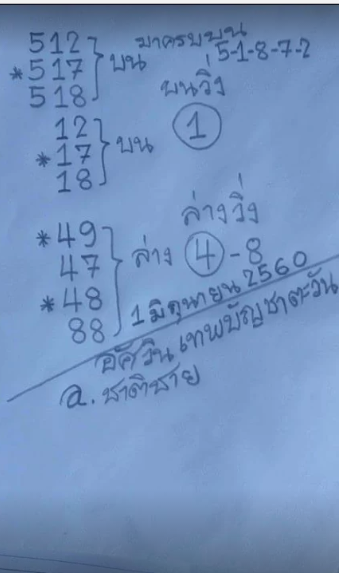 มาครบบน
512
*517 } บน 5-1-8-7-2
518
บนวิ่ง
12
*17 } บน 1
18
ล่างวิ่ง
*49
47 } ล่าง 4-8
*48
88
1 มิถุนายน 2560
อัศวิน เทพบัญชาตะวัน
อ. ชาติชาย